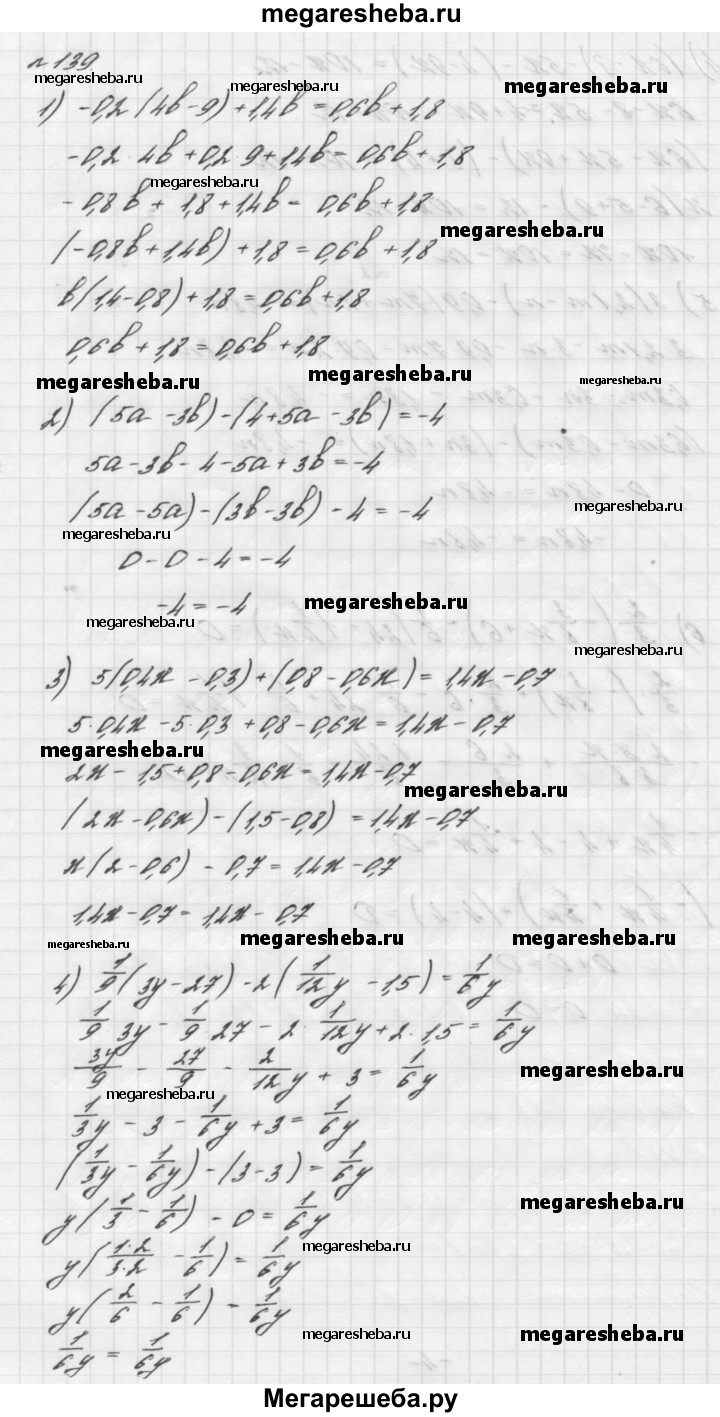 megaresheba.ru
№ 139
megaresheba.ru megaresheba.ru megaresheba.ru
1) -0,2 (4b-9) + 1,4b = 0,6b + 1,8
-0,2 · 4b + 0,2 · 9 + 1,4b = 0,6b + 1,8
megaresheba.ru
-0,8b + 1,8 + 1,4b = 0,6b + 1,8
megaresheba.ru
(-0,8b + 1,4b) + 1,8 = 0,6b + 1,8
b(1,4-0,8) + 1,8 = 0,6b + 1,8
0,6b + 1,8 = 0,6b + 1,8
megaresheba.ru megaresheba.ru megaresheba.ru
2) (5a - 3b) - (4 + 5a - 3b) = -4
5a - 3b - 4 - 5a + 3b = -4
(5a - 5a) - (3b - 3b) - 4 = -4
megaresheba.ru megaresheba.ru
0 - 0 - 4 = -4
-4 = -4
megaresheba.ru
megaresheba.ru megaresheba.ru
3) 5(0,4x - 0,3) + (0,8 - 0,6x) = 1,4x - 0,7
5·0,4x - 5·0,3 + 0,8 - 0,6x = 1,4x - 0,7
megaresheba.ru
2x - 1,5 + 0,8 - 0,6x = 1,4x - 0,7
megaresheba.ru
(2x - 0,6x) - (1,5 - 0,8) = 1,4x - 0,7
x(2 - 0,6) - 0,7 = 1,4x - 0,7
1,4x - 0,7 = 1,4x - 0,7
megaresheba.ru megaresheba.ru megaresheba.ru
4) 1/9 (3y - 27) - 2(1/12 y - 1,5) = 1/6 y
1/9 3y - 1/9 27 - 2 · 1/12 y + 2 · 1,5 = 1/6 y
3y/9 - 27/9 - 2/12 y + 3 = 1/6 y
megaresheba.ru megaresheba.ru
1/3 y - 3 - 1/6 y + 3 = 1/6 y
(1/3 y - 1/6 y) - (3 - 3) = 1/6 y
y(1/3 - 1/6) - 0 = 1/6 y
megaresheba.ru
y(1·2/3·2 - 1/6) = 1/6 y
megaresheba.ru
y(2/6 - 1/6) = 1/6 y
1/6 y = 1/6 y
megaresheba.ru megaresheba.ru
Мегарешеба.ру